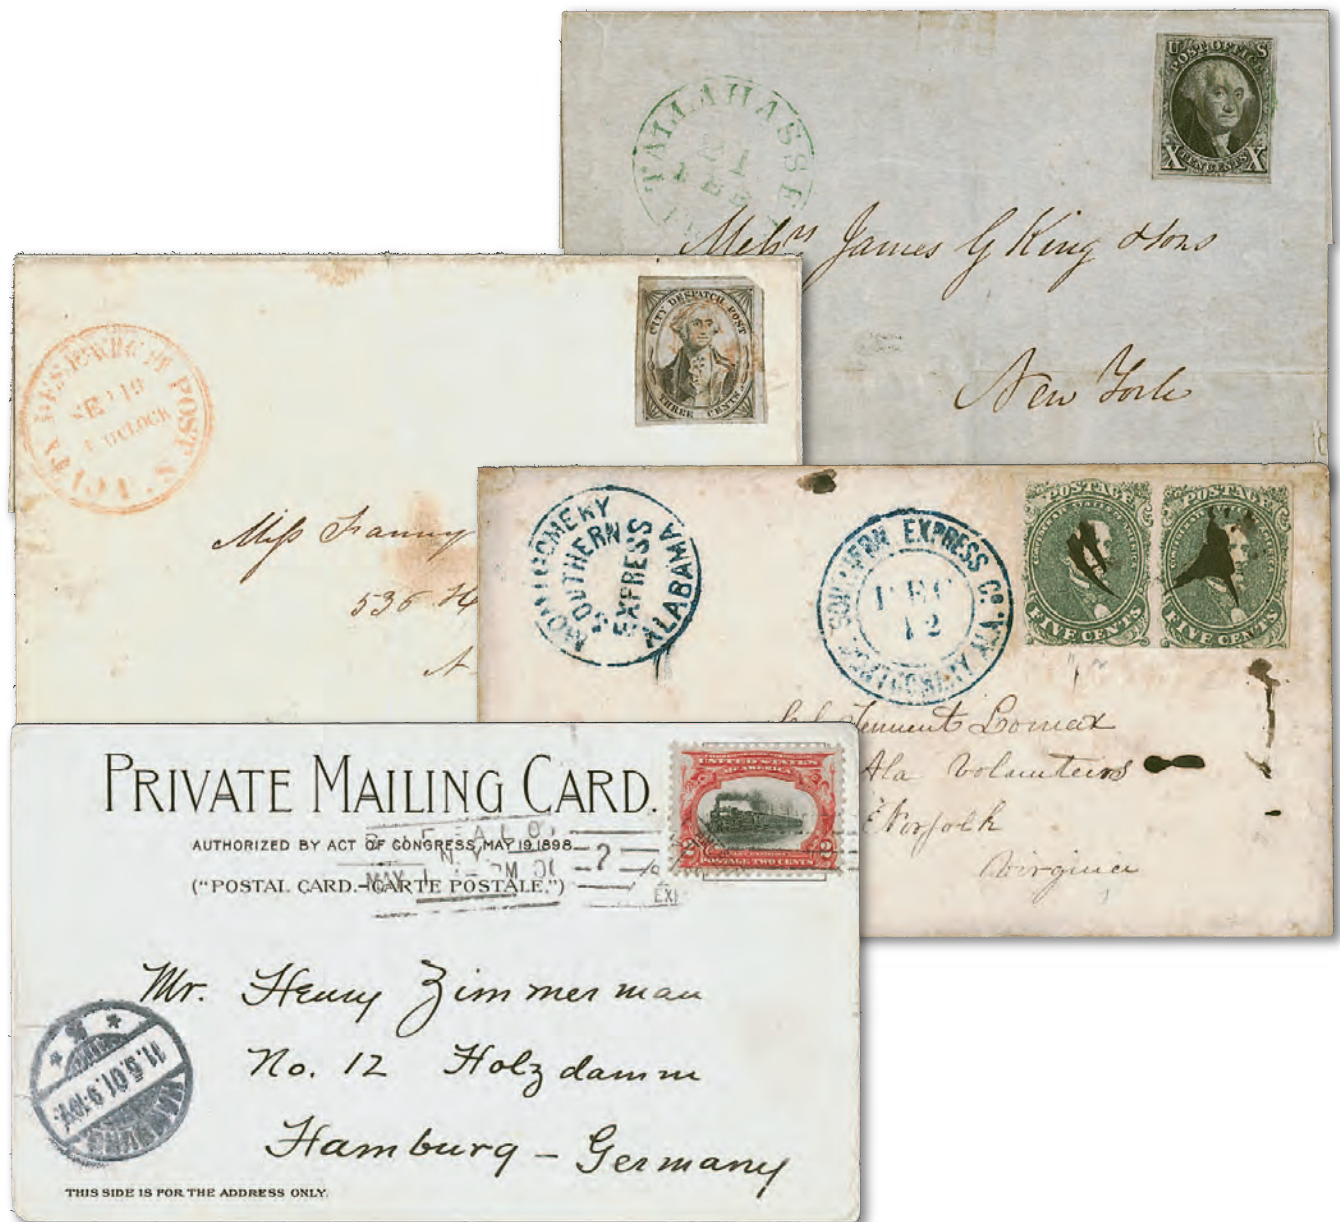 U S
POST OFFICE
X TEN CENTS X
TALLAHASSEE
Messrs James G King & Sons
New York
CITY DESPATCH POST
THREE CENTS
CITY DESPATCH POST
SEP 19
O'CLOCK
Miss Fanny
536
MONTGOMERY
SOUTHERN
EXPRESS
ALABAMA
SOUTHERN EXPRESS Co
DEC
12
MONTGOMERY ALA.
POSTAGE
FIVE CENTS
POSTAGE
FIVE CENTS
Tennent Lomax
Ala Volunteers
Norfolk
Virginia
PRIVATE MAILING CARD.
AUTHORIZED BY ACT OF CONGRESS, MAY 19, 1898.
("POSTAL CARD.-CARTE POSTALE.")
UNITED STATES
OF AMERICA
2 POSTAGE TWO CENTS 2
BUFFALO,
N.Y.
MAY
Mr. Henry Zimmerman
No. 12 Holzdamm
Hamburg - Germany
11.5.01.9-10V.
HAMBURG
THIS SIDE IS FOR THE ADDRESS ONLY.